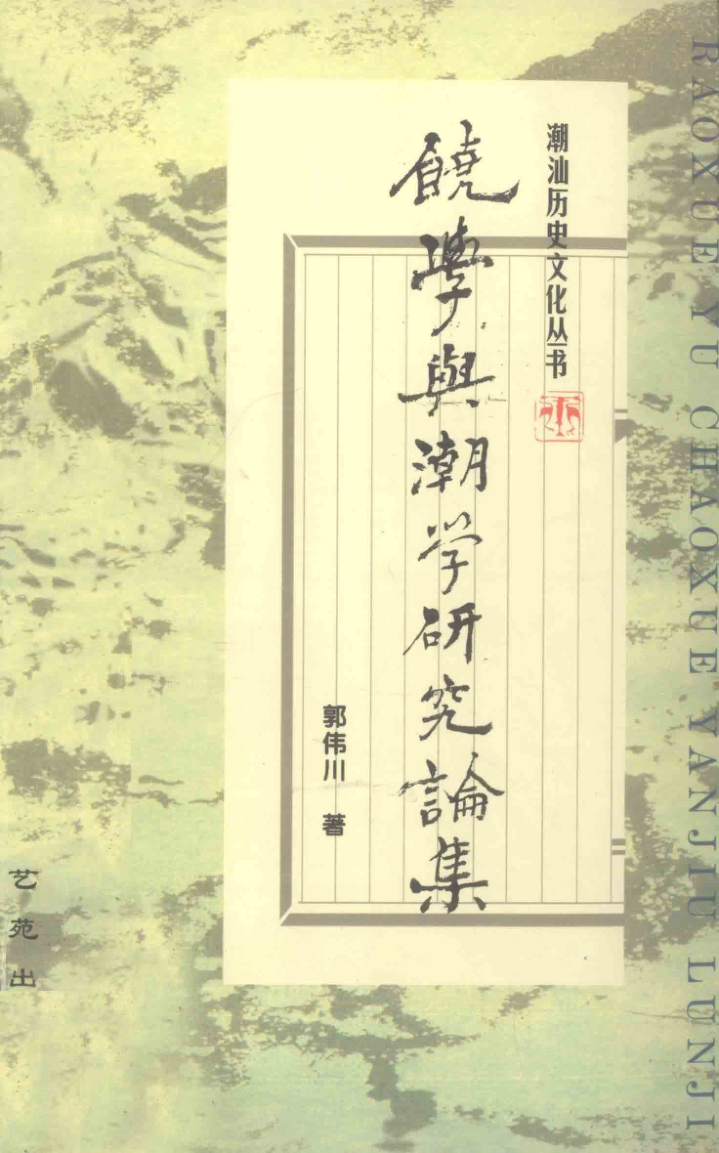 潮汕历史文化丛书
饒學與潮学研究論集
郭伟川 著
艺苑出
RAOXUE YU CHAOXUE YANJIU LUNJI